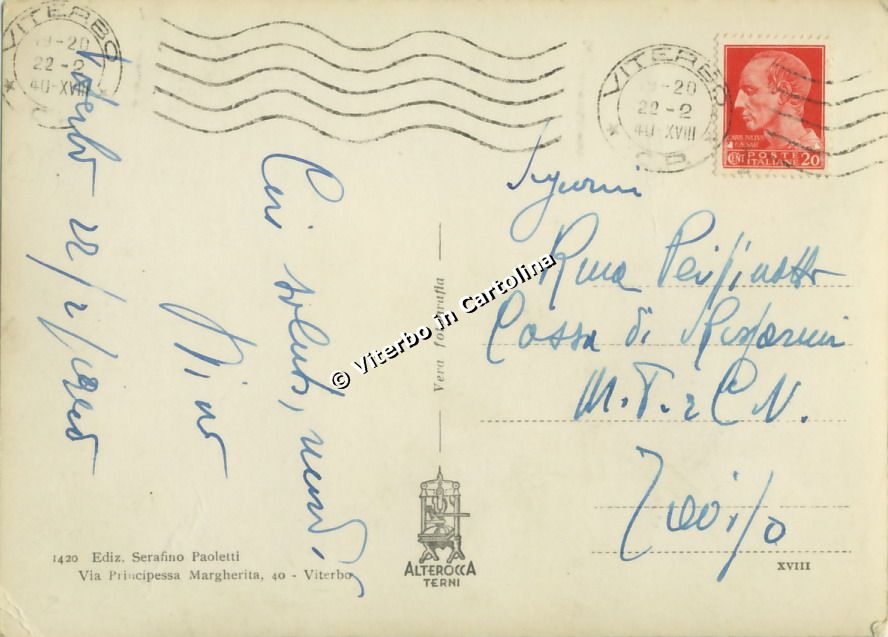 VITERBO
19-20
22-2
40-XVIII
VITERBO
19-20
22-2
40-XVIII
C.P.
CAIVS IVLIVS
CAESAR
CENT POSTE ITALIANE 20
Viterbo 22/2/1940
Cari saluti,
Nino
Rina
Cassa di Risparmio
M. T. e C. N.
Treviso
Vera fotografia
© Viterbo in Cartolina
1420 Ediz. Serafino Paoletti
Via Principessa Margherita, 40 - Viterbo
ALTEROCCA
TERNI
XVIII